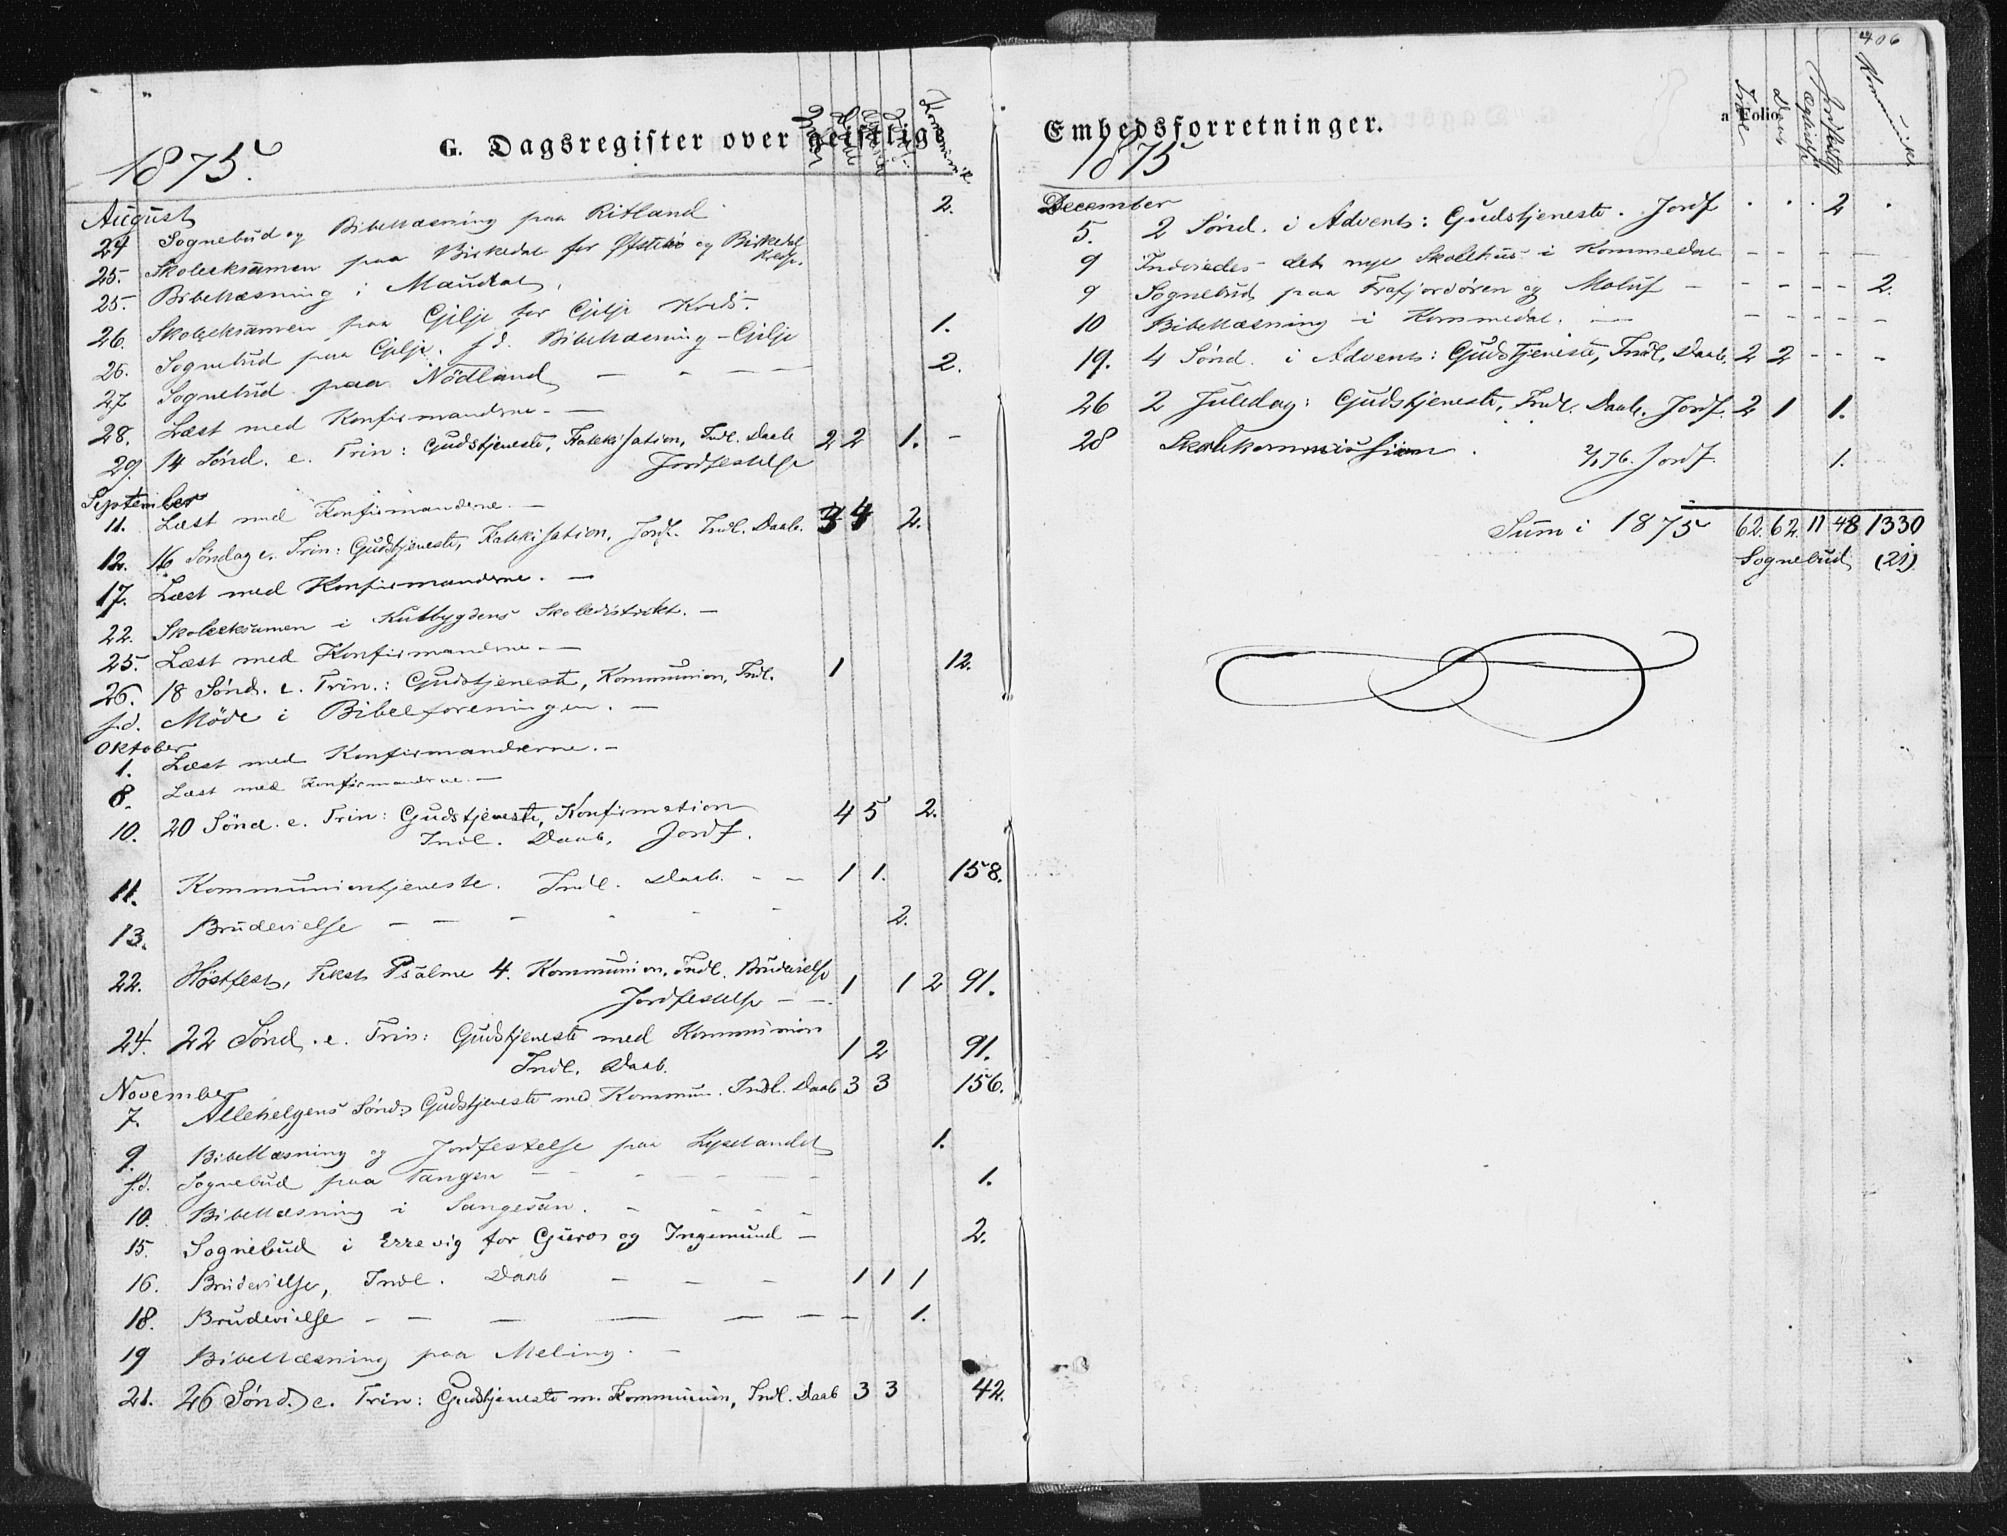 1875.
G. Dagsregister over geistlige
Kommunik
August
24 Sognebud og Bibellæsning paa Ritland 2.
25. Skoleeksamen paa Birkedal for Øfstebø og Birkedal Kreds.
25. Bibellæsning i Maudal.
26. Skoleeksamen paa Gilje for Gilje Kreds.
26. Sognebud paa Gilje. s. d. Bibellæsning - Gilje 1.
27 Sognebud paa Nödland — - — — 2.
28. Læst med Konfirmanderne. —
29. 14 Sönd. e. Trin: Gudstjeneste, Katekisation, Indl. Daab 2 2 1. -
Jordfestelse
September
11. Læst med Konfirmanderne. —
12. 16 Söndag e. Trin: Gudstjeneste, Katekisation, Jordf. Indl. Daab. 4 2.
17. Læst med Konfirmanderne. —
22. Skoleeksamen i Skoledistrikt. —
25. Læst med Konfirmanderne. —
26. 18 Sönd. e. Trin.: Gudstjeneste, Kommunion, Indl. 1 12.
s.d. Möde i Bibelforeningen. —
Oktober
1. Læst med Konfirmanderne. —
8. Læst med Konfirmanderne. —
10. 20 Sönd. e. Trin: Gudstjeneste, Konfirmation 4 5 2.
Indl. Daab, Jordf.
11. Kommuniontjeneste. Indl. Daab. - - 1 1. 158.
13. Brudevielse — — — - - - 2.
22. Höstfest, Tekst Psalme 4. Kommunion, Indl. Brudevielse 1 1 2 91.
Jordfestelse — —
24. 22 Sönd. e. Trin: Gudstjeneste med Kommunion 1 2 91.
Indl. Daab.
November
7. Allehelgens Sönd: Gudstjeneste med Kommun. Indl. Daab 3 3 156.
9. Bibellæsning og Jordfestelse paa 1.
s.d. Sognebud paa Tangen — - - - - - 1.
10. Bibellæsning i Sangesan. - - - -
15. Sognebud i Errevig for Guros og Ingemund — 2.
16. Brudevielse, Indl. Daab — — — 1 1 1
18. Brudevielse — — — — — — — 1.
19 Bibellæsning paa Meling. —
21. 26 Sönd. e. Trin: Gudstjeneste m. Kommunion, Indl. Daab 3 3 42.
406
Embedsforretninger.
a Folio
Indl Daab Jordfestelse
1875
December
5. 2 Sönd. i Advent: Gudstjeneste. Jordf . . . 2 .
9 Indviedes det nye Skolehus i Kommedal — — — —
9 Sognebud paa Frafjordören og Moluf — - - - - 2.
10 Bibellæsning i Kommedal. — — — — — —
19. 4 Sönd. i Advent: Gudstjeneste, Indl, Daab. 2 2 - - -
26 2 Juledag: Gudstjeneste, Indl. Daab. Jordf. 2 1 1.
28 Skolekommission. 2/1 76. Jordf. 1.
Sum i 1875 62. 62. 11 48 1330
Sognebud (21)